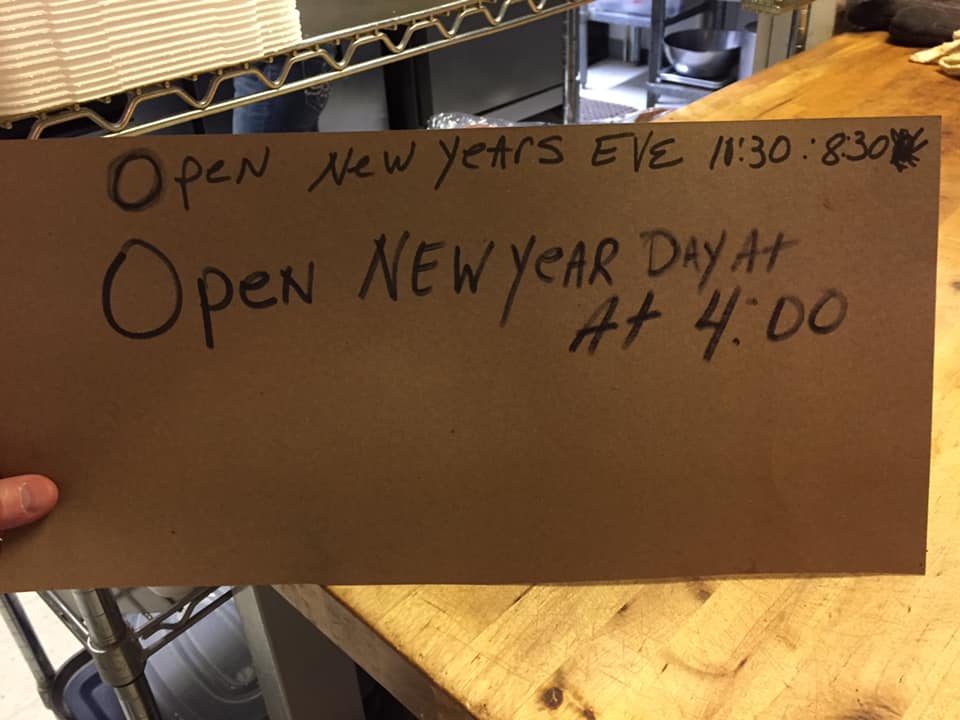 Open New Years Eve 11:30 : 8:30
Open New Year Day At
At 4:00